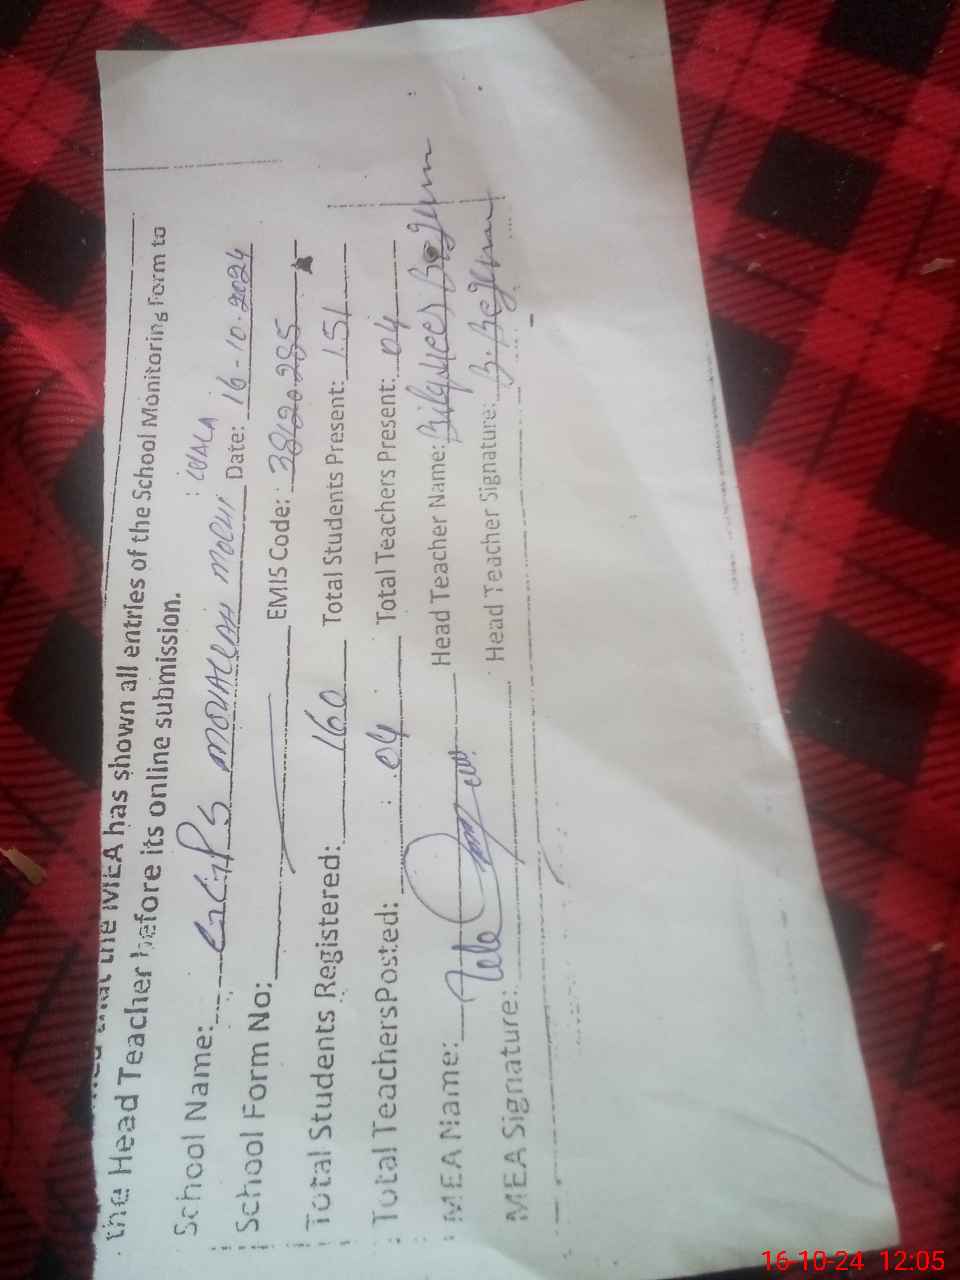 that the MEA has shown all entries of the School Monitoring Form to
the Head Teacher before its online submission.
School Name: GGPS MOHALLAH MOCHI WALA Date: 16-10-2024
School Form No: EMIS Code: 38120285
Total Students Registered: 160 Total Students Present: 151
Total Teachers Posted: 04 Total Teachers Present: 04
MEA Name: Head Teacher Name: Bilqees Begum
MEA Signature: Head Teacher Signature: B.Begum
16-10-24 12:05